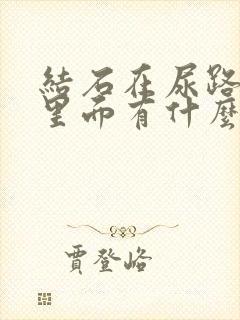 結石在尿路
里而有什麼
賈登峪